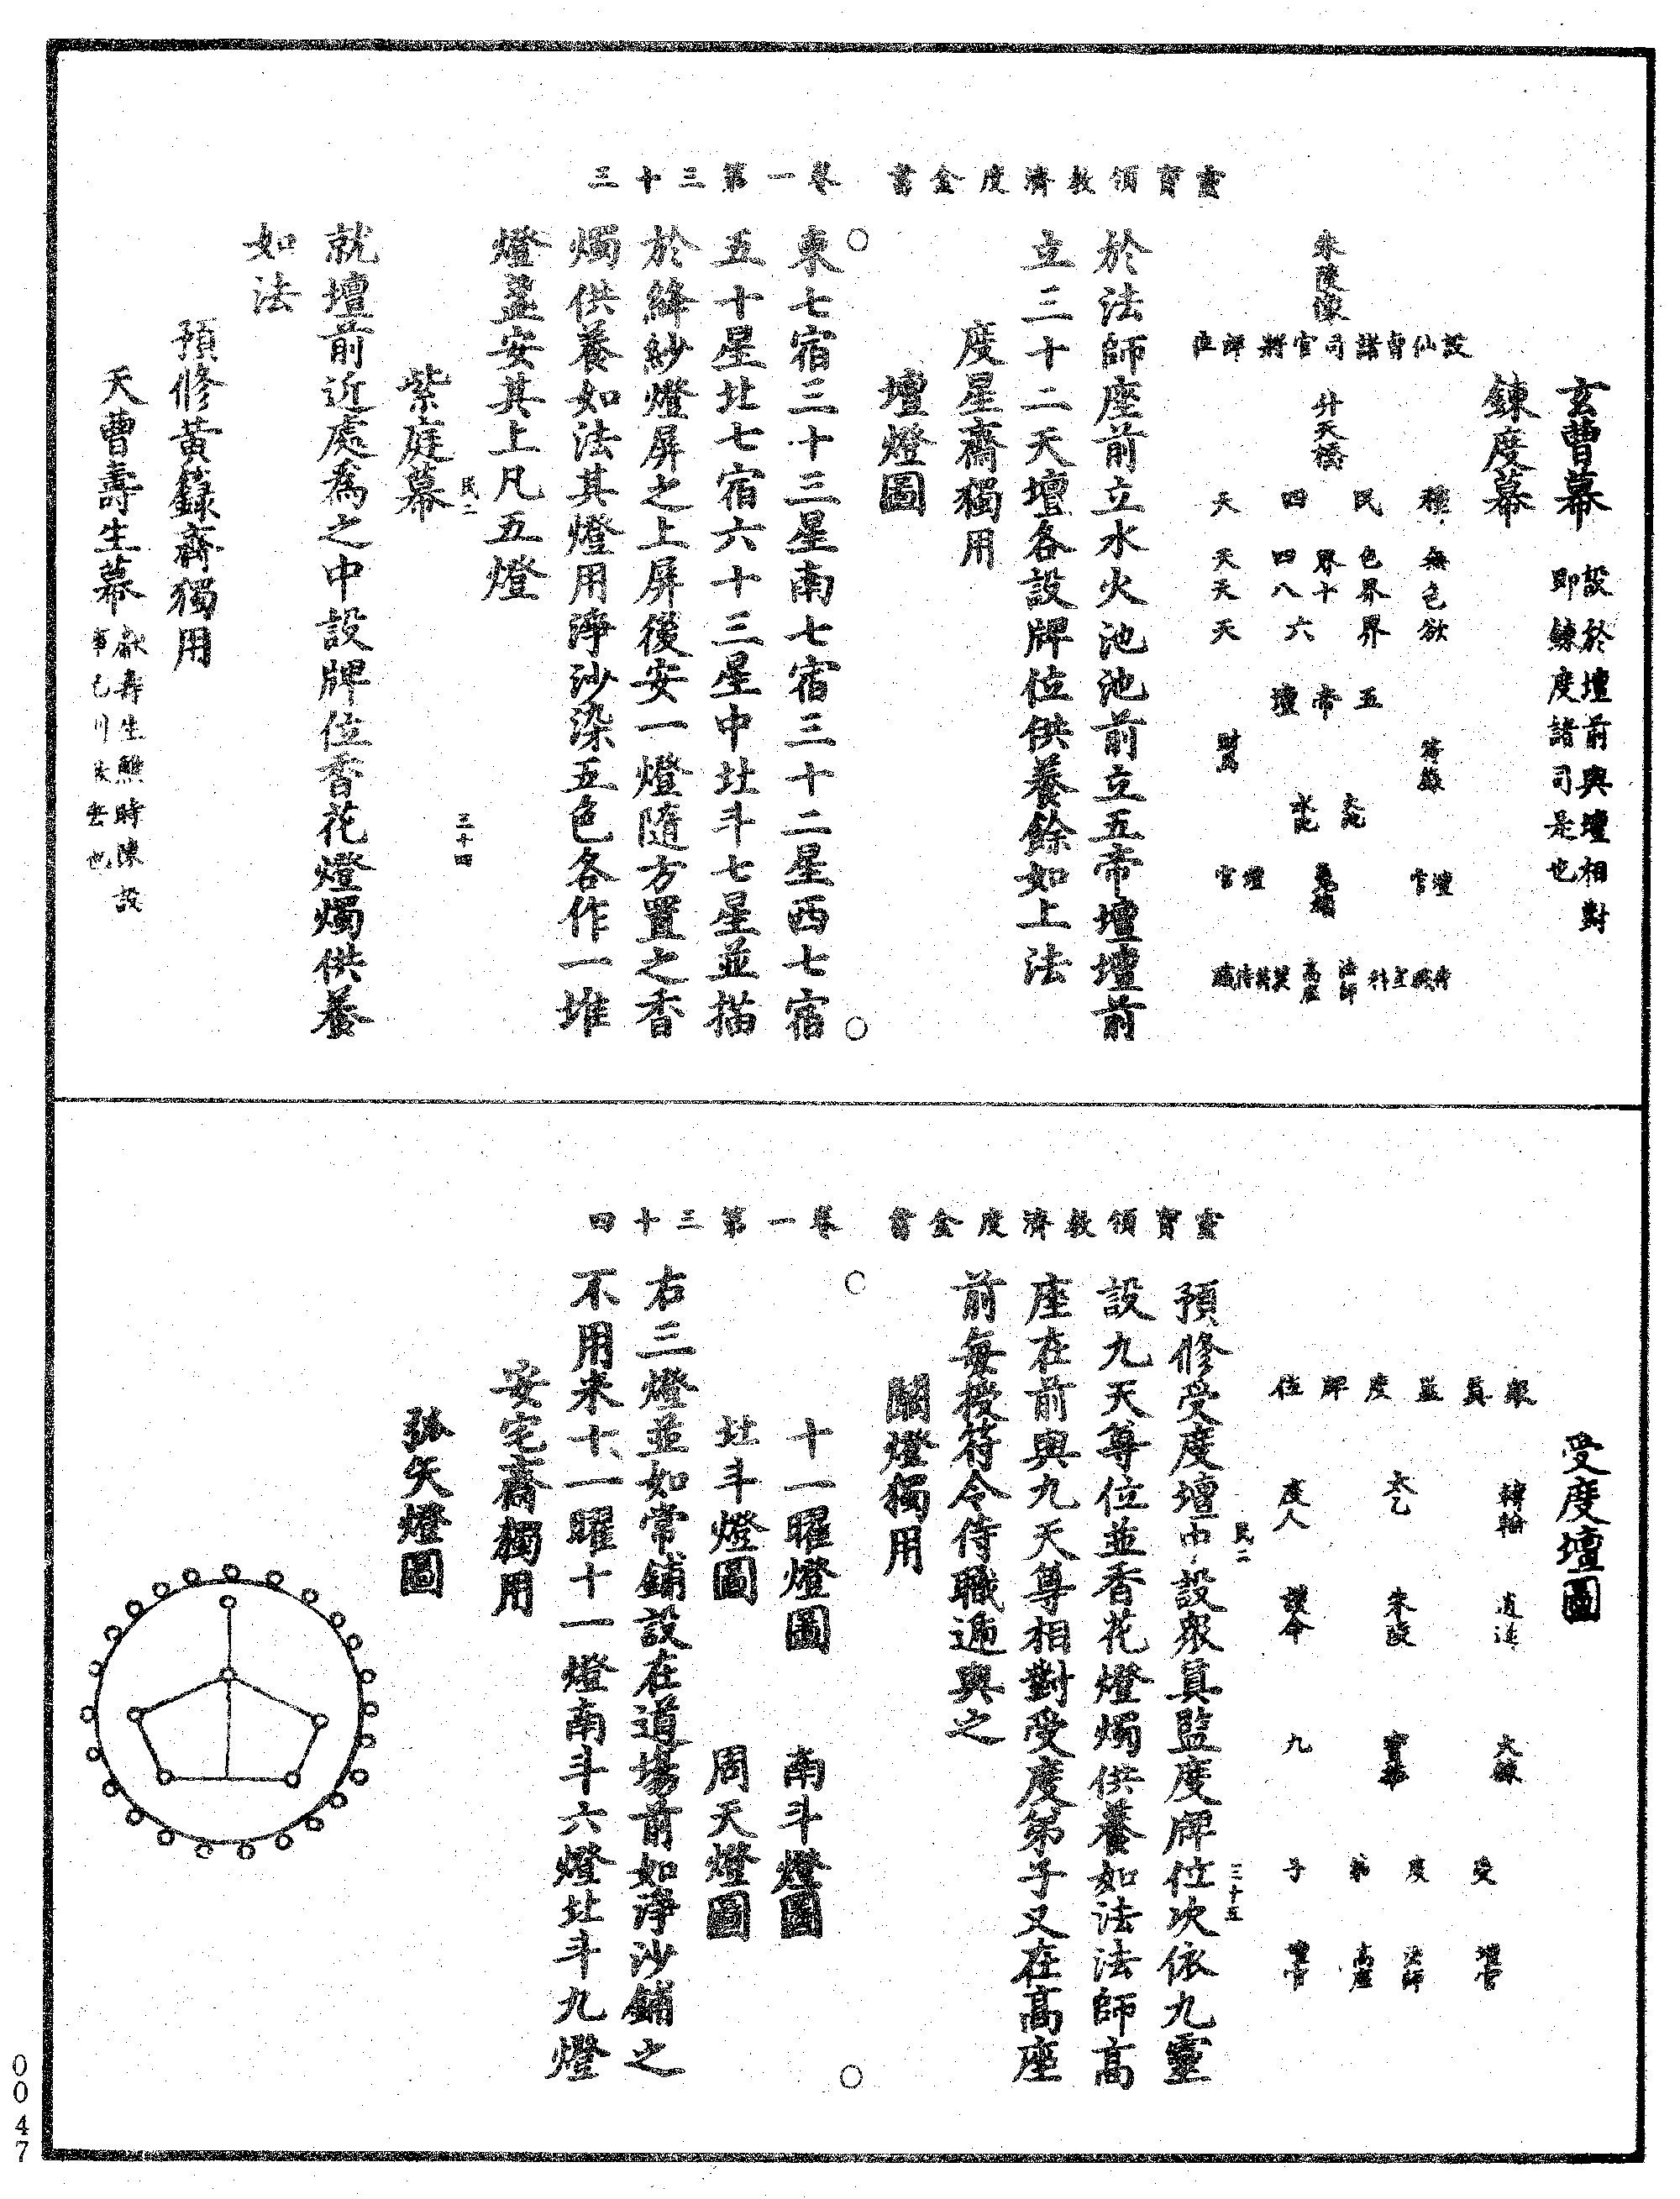 靈寶領教濟度金書　卷一第三十三
玄曹幕　設於壇前與壇相對
即鍊度諸司是也
鍊度幕
設仙曹諸司官將牌位
升天橋
種民四天
無色界四天
色界十八天
欲界六天
五帝壇
壇官
壇官
法師
高座
於法師座前立水火池池前立五帝壇壇前
立三十二天壇各設牌位供養餘如上法
度星齋獨用
壇燈圖
東七宿三十三星南七宿三十二星西七宿
五十星北七宿六十三星中北斗七星並描
於絳紗燈屏之上屏後安一燈隨方置之香
燭供養如法其燈用淨沙染五色各作一堆
燈盞安其上凡五燈
民二　三十四
紫庭幕
就壇前近處為之中設牌位香花燈燭供養
如法
預修黃籙齋獨用
天曹壽生幕　獻壽生醮時陳設
靈寶領教濟度金書　卷一第三十四
受度壇圖
眾真監度牌位
轉輪
太乙
度人
逍遙
朱陵
護命
大緣
九
受度弟子
壇官
法師
高座
壇官
民二　三十五
預修受度壇中設眾真監度牌位次依九靈
設九天尊位並香花燈燭供養如法法師高
座在前與九天尊相對受度弟子又在高座
前每授符令侍職遞與之
關燈獨用
十一曜燈圖　南斗燈圖
北斗燈圖　周天燈圖
右三燈並如常鋪設在道場前如淨沙鋪之
不用米十一曜十一燈南斗六燈北斗九燈
安宅齋獨用
弧矢燈圖
0047